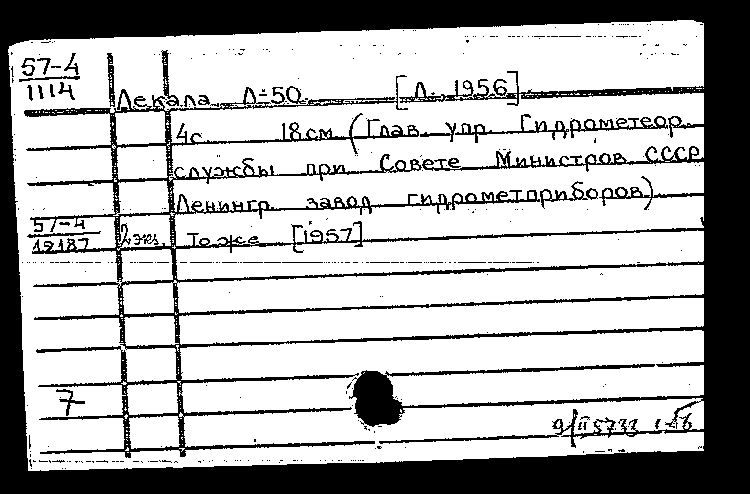 57-4
1114
Лекала Л-50. [Л. 1956]
4с. 18см (Глав. упр. Гидрометеор.
службы при Совете Министров СССР.
Ленингр. завод гидрометприборов)
57-4
12187 2 экз. То же [1957]
7